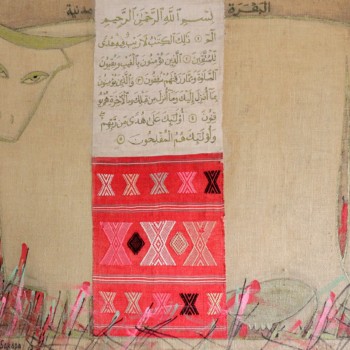 البَقَرَة مدنية
بِسْمِ ٱللَّهِ ٱلرَّحْمَٰنِ ٱلرَّحِيمِ
الٓمٓ ۝ ذَٰلِكَ ٱلْكِتَٰبُ لَا رَيْبَ فِيهِ هُدًى
لِّلْمُتَّقِينَ ۝ ٱلَّذِينَ يُؤْمِنُونَ بِٱلْغَيْبِ وَيُقِيمُونَ
ٱلصَّلَوٰةَ وَمِمَّا رَزَقْنَٰهُمْ يُنفِقُونَ ۝ وَٱلَّذِينَ يُؤْمِنُونَ
بِمَآ أُنزِلَ إِلَيْكَ وَمَآ أُنزِلَ مِن قَبْلِكَ وَبِٱلْءَاخِرَةِ هُمْ يُو
قِنُونَ ۝ أُوْلَٰٓئِكَ عَلَىٰ هُدًى مِّن رَّبِّهِمْ
وَأُوْلَٰٓئِكَ هُمُ ٱلْمُفْلِحُونَ ۝